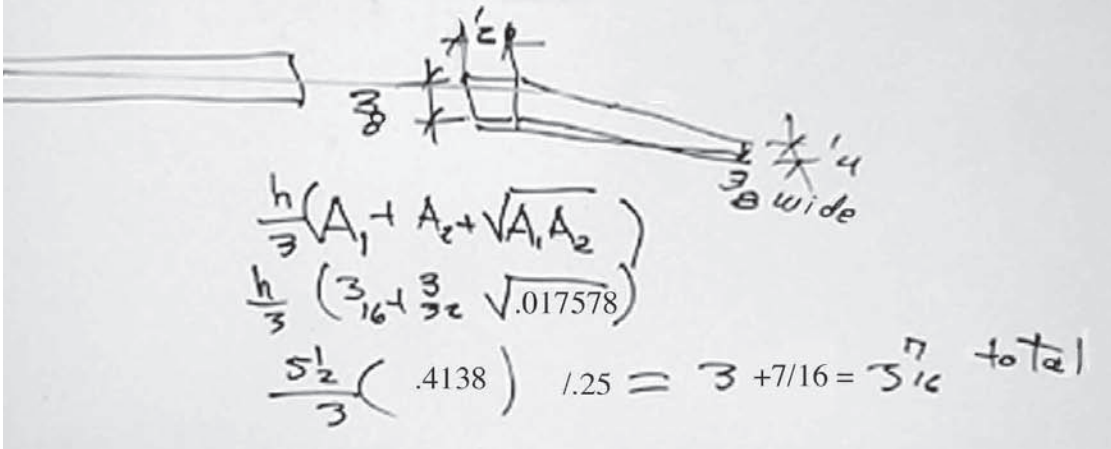 1/2
3/8
1/4
3/8 wide
h/3 (A₁ + A₂ + √A₁A₂)
h/3 (3/16 + 3/32 √.017578)
5 1/2/3 ( .4138 ) /.25 = 3 +7/16 = 3 7/16 total